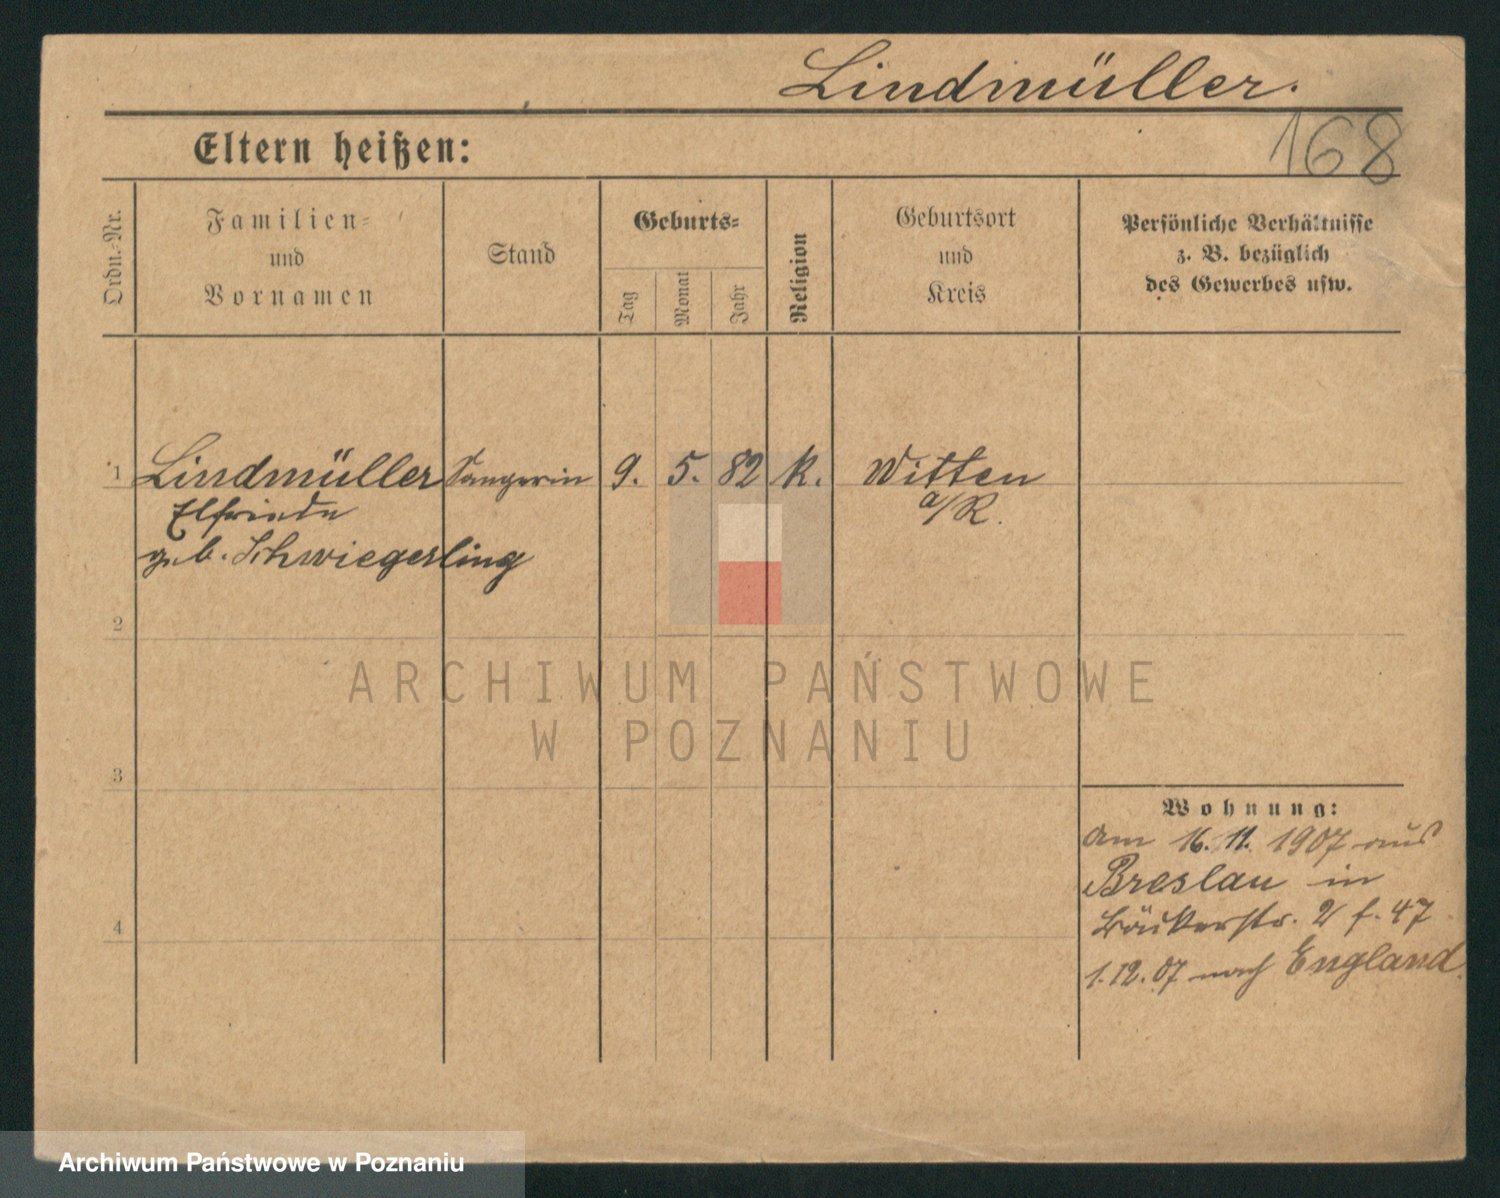 Lindmüller.
168
Eltern heißen:
Ordn.-Nr.
Familien-
und
Vornamen
Stand
Geburts-
Tag
Monat
Jahr
Religion
Geburtsort
und
Kreis
Persönliche Verhältnisse
z. B. bezüglich
des Gewerbes usw.
1 Lindmüller Sängerin 9. 5. 82 k. Witten
Elfriede a/R.
geb. Schwiegerling
2
ARCHIWUM PAŃSTWOWE
W POZNANIU
3
Wohnung:
am 16. 11. 1907 aus
Breslau in
Bäckerstr. 2 f. 47
4
1.12.07 nach England.
Archiwum Państwowe w Poznaniu